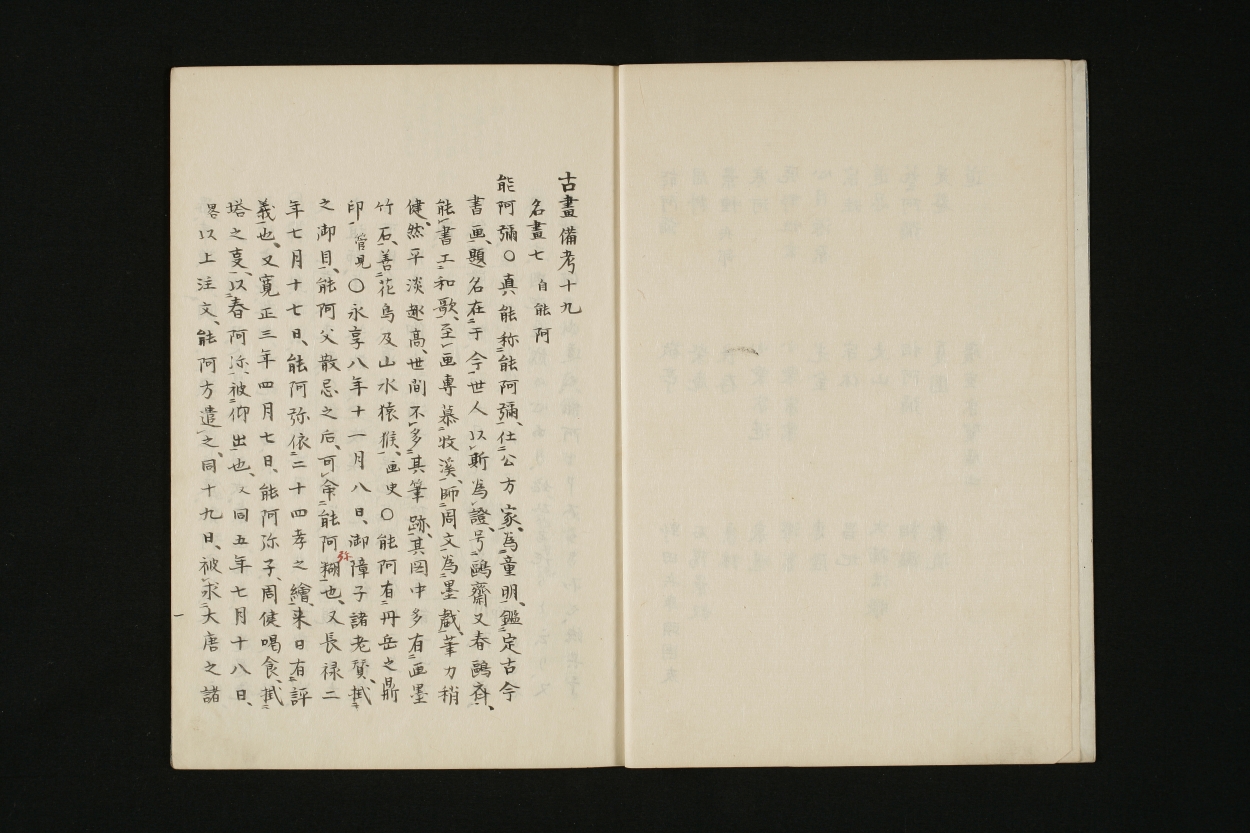 古畫備考十九
名畫七 自能阿
能阿彌〇真能称能阿彌、仕公方家、為童明、鑑定古今
書画、題名在于今世人以斯為證、号鷗齋又春鷗齋、
能書工和歌、至画専慕牧溪、師周文為墨戯、筆力稍
健、然平淡趣高、世間不多其筆跡、其図中多有画墨
竹石、善花鳥及山水猿猴、画史〇能阿有丹岳之鼎
印、管見〇永享八年十一月八日、御障子諸老賛、掛
之御目、能阿父散忌之后、可命能阿糊弥也、又長禄二
年七月十七日、能阿弥依二十四孝之繪、来日有評
義也、又寛正三年四月七日、能阿弥子、周健喝食、掛
塔之㕝、以春阿弥被仰出也、又同五年七月十八日、
畧以上注文、能阿方遣之、同十九日、被求大唐之諸
一